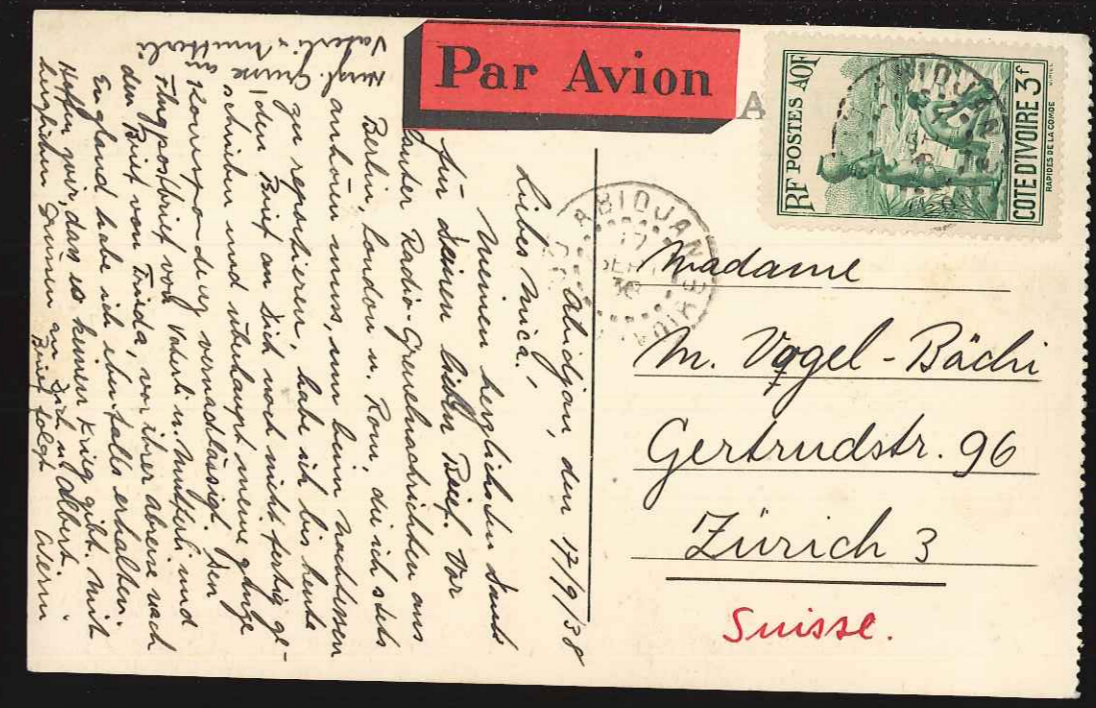 Par Avion
A
RF POSTES AOF
COTE D'IVOIRE 3f
RAPIDES DE LA COMOE
ABIDJAN
ABIDJAN
17
SEPT
38
COTE D'IVOIRE
Abidjan, den 17/9/38
Liebes Mica!
Meinen herzlichsten Dank
für deinen lieben Brief. Vor
lauter Radio-Greuelnachrichten aus
Berlin, London u. Rom, die ich stets
anhören muss, um beim Nachtessen
zu reportieren, habe ich bis heute
den Brief an Dich noch nicht fertig ge-
schrieben und überhaupt meine ganze
Korrespondenz vernachlässigt. Den
Flugpostbrief von Vaterli u. Mutterli und
den Brief von Frieda, vor ihrer Abreise nach
England habe ich ebenfalls erhalten.
Hoffen wir, dass es keinen Krieg gibt. Mit
herzlichen Grüssen an Dich u. Albert
Brief folgt Werni
Herzl. Grüsse an
Vaterli & Mutterli
Madame
M. Vogel-Bächi
Gertrudstr. 96
Zürich 3
Suisse.